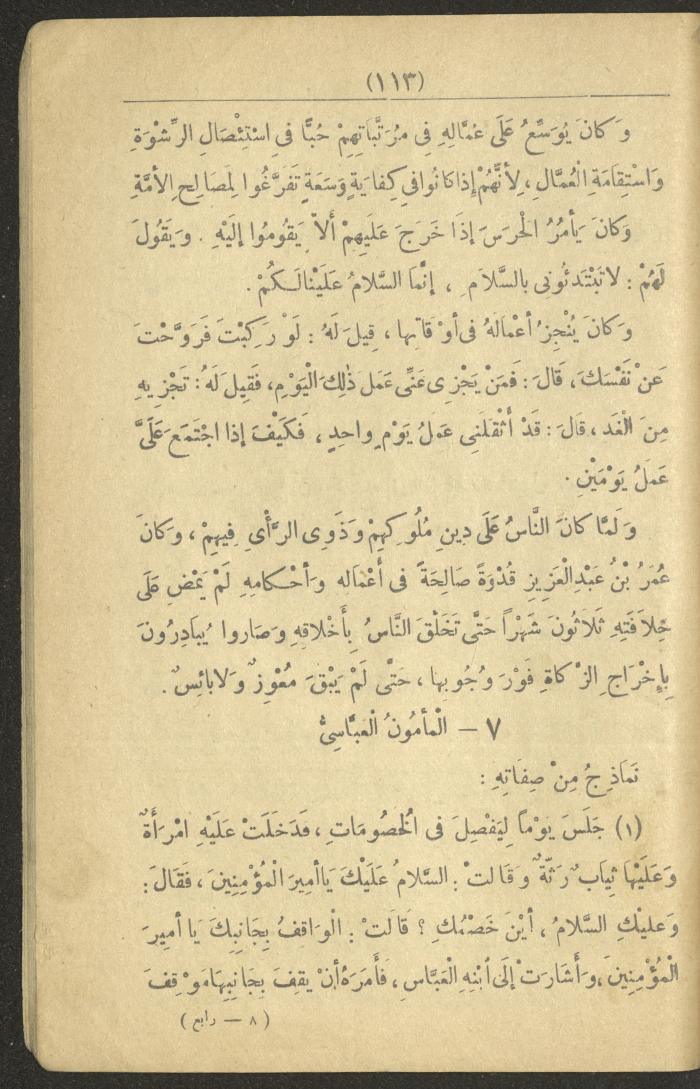 (١١٣)
وَكانَ يُوَسِّعُ عَلَى عُمَّالِهِ فِى مُرَتَّبَاتِهِمْ حُبًّا فِى اسْتِئْصَالِ الرِّشْوَةِ
وَاسْتِقَامَةِ الْعُمَّالِ، لِأَنَّهُمْ إِذَا كانُوا فِى كِفايَةٍ وَسَعَةٍ تَفَرَّغُوا لِمَصَالِحِ الأُمَّةِ
وَكانَ يَأْمُرُ الْحَرَسَ إِذَا خَرَجَ عَلَيْهِمْ أَلاَّ يَقُومُوا إِلَيْهِ . وَيَقُولُ
لَهُمْ : لا تَبْتَدِئُونِى بالسَّلاَمِ ، إِنَّمَا السَّلاَمُ عَلَيْنا لَكُمْ .
وَكانَ يُنْجِزُ أَعْمَالَهُ فِى أَوْقاتِها ، قِيلَ لَهُ : لَوْ رَكِبْتَ فَرَوَّحْتَ
عَنْ نَفْسِكَ ، قَالَ : فَمَنْ يَجْزِى عَنِّى عَمَلَ ذٰلِكَ الْيَوْمِ، فَقِيلَ لَهُ : تَجْزِيهِ
مِنَ الْغَدِ ، قالَ : قَدْ أَثْقَلَنِى عَمَلُ يَوْمٍ واحِدٍ ، فَكَيْفَ إِذا اجْتَمَعَ عَلَىَّ
عَمَلُ يَوْمَيْنِ .
وَلَمَّا كانَ النَّاسُ عَلَى دِينِ مُلُوكِهِمْ وَذَوِى الرَّأْىِ فِيهِمْ ، وَكانَ
عُمَرُ بْنُ عَبْدِ الْعَزِيزِ قُدْوَةً صَالِحَةً فى أَعْمَالِهِ وَأَحْكامِهِ لَمْ يَمْضِ عَلَى
خِلاَفَتِهِ ثَلاَثُونَ شَهْرًا حَتَّى تَخَلَّقَ النَّاسُ بِأَخْلاقِهِ وَصَاروا يُبادِرُونَ
بِإِخْرَاجِ الزَّكاةِ فَوْرَ وُجُوبِها ، حَتَّى لَمْ يَبْقَ مُعْوِزٌ وَلا بائِسٌ .
٧ — الْمأْمُونُ الْعَبَّاسِىُّ
نَمَاذِجُ مِنْ صِفَاتِهِ :
(١) جَلَسَ يَوْماً لِيَفْصِلَ فى الْخُصُومَاتِ ، فَدَخَلَتْ عَلَيْهِ امْرَأَةٌ
وَعَلَيْهَا ثِيابٌ رَثَّةٌ وَقَالَتْ : السَّلاَمُ عَلَيْكَ يَا أَمِيرَ الْمُؤْمِنِينَ ، فَقَالَ :
وَعليْكِ السَّلاَمُ ، أَيْنَ خَصْمُكِ ؟ قَالَتْ : الْوَاقِفُ بِجَانِبِكَ يَا أَمِيرَ
الْمُؤْمِنِينَ ، وَأَشَارَتْ إِلَى ابْنِهِ الْعَبَّاسِ ، فَأَمَرَهُ أَنْ يَقِفَ بِجَانِبِهَا مَوْقِفَ
( ٨ — رابع )